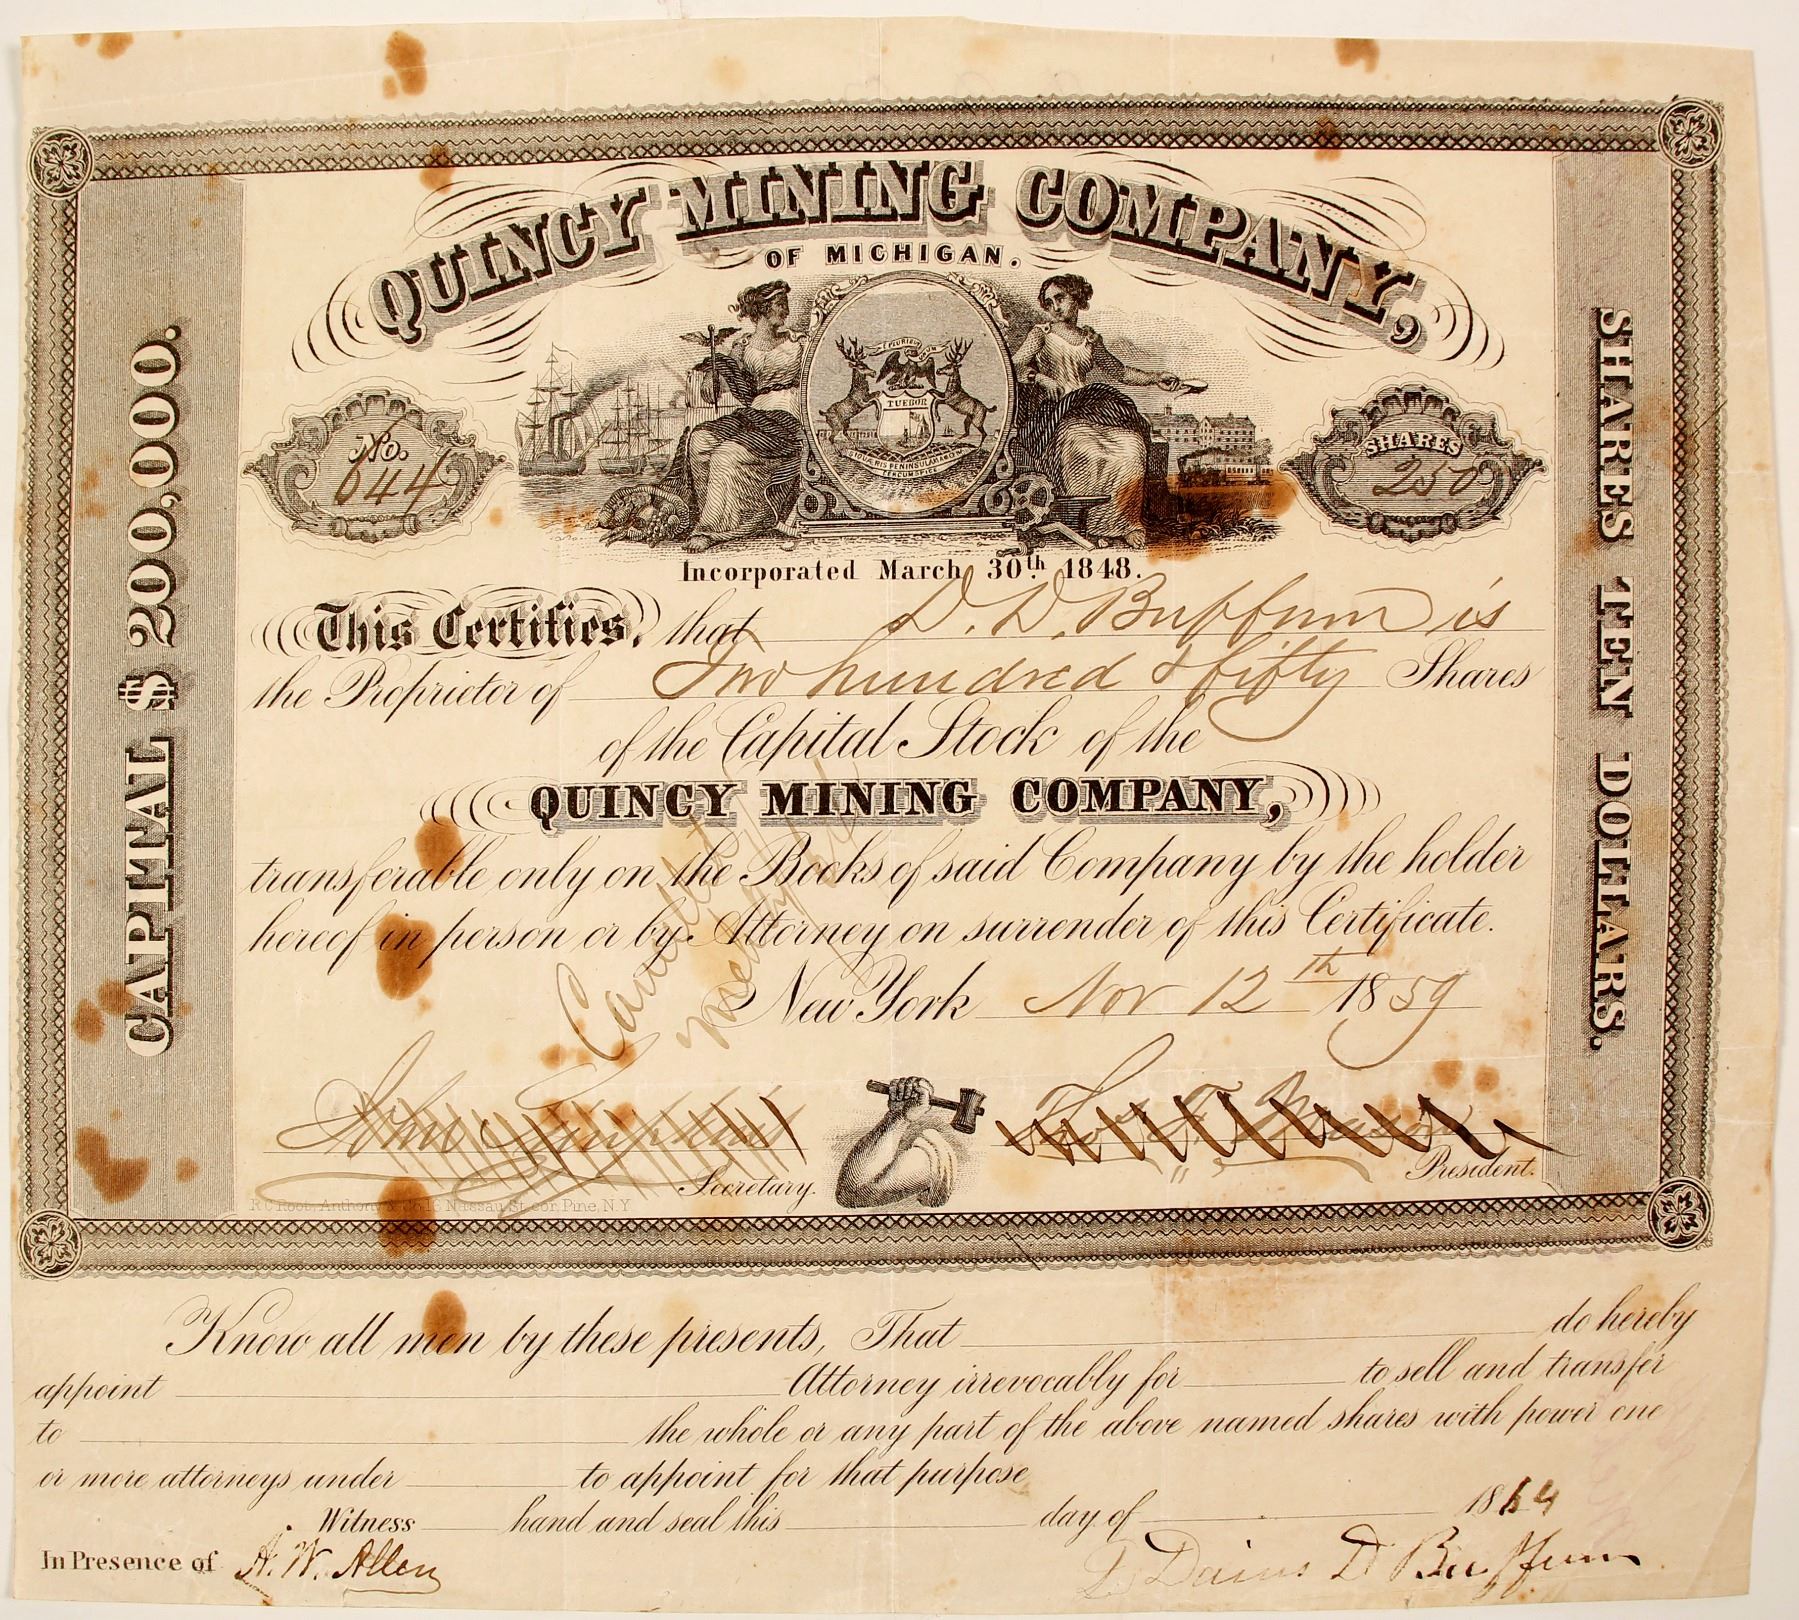 QUINCY MINING COMPANY,
OF MICHIGAN.
E PLURIBUS UNUM
TUEBOR
SI QUAERIS PENINSULAM AMOENAM
CIRCUMSPICE
No.
644
SHARES
250
CAPITAL $ 200,000.
SHARES TEN DOLLARS.
Incorporated March 30th 1848.
This Certifies, that D. D. Buffum is
the Proprietor of Two hundred & fifty Shares
of the Capital Stock of the
QUINCY MINING COMPANY,
transferable only on the Books of said Company by the holder
hereof in person or by Attorney on surrender of this Certificate.
New York Nov 12th 1859
Cancelled
John Simpkins
Secretary.
Thos F. Mason
President.
R C Root, Anthony & Co 16 Nassau St. cor. Pine, N.Y
Know all men by these presents, That do hereby
appoint Attorney irrevocably for to sell and transfer
to the whole or any part of the above named shares with power one
or more attorneys under to appoint for that purpose
Witness hand and seal this day of 1864
In Presence of A. W. Allen
Darius D Buffum